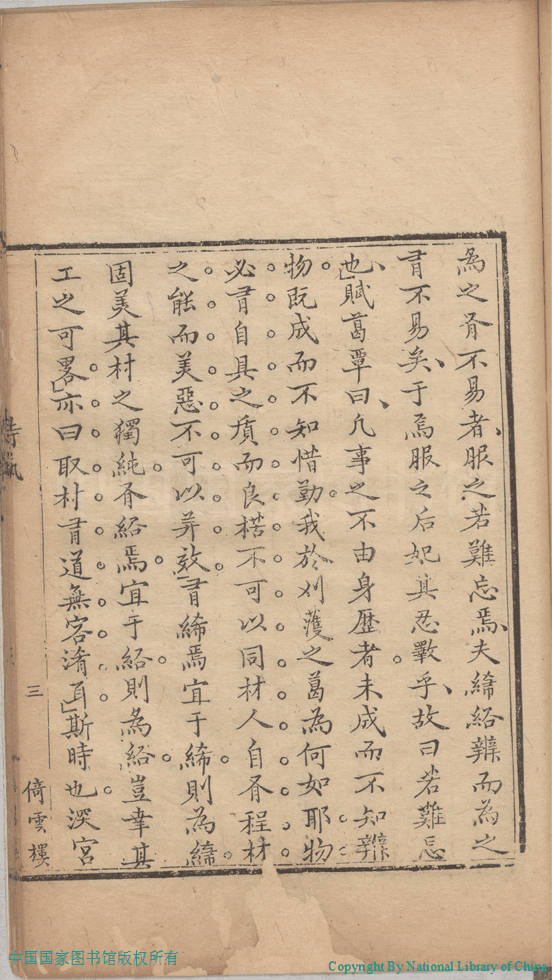 為之有不易者服之若難忘焉夫絺綌辦而為之
有不易矣于焉服之后妃其忍斁乎故曰若難忘
也賦葛覃曰凡事之不由身歷者未成而不知辦
物既成而不知惜勤我於刈濩之葛為何如耶物
必有自具之質而良楛不可以同材人自有程材
之能而美惡不可以并效有絺焉宜于絺則為絺
固美其材之獨純有綌焉宜于綌則為綌豈幸其
工之可畧亦曰取材有道無容淆耳斯時也深宮
三
倚雲樓
中国国家图书馆版权所有
Copyright By National Library of China